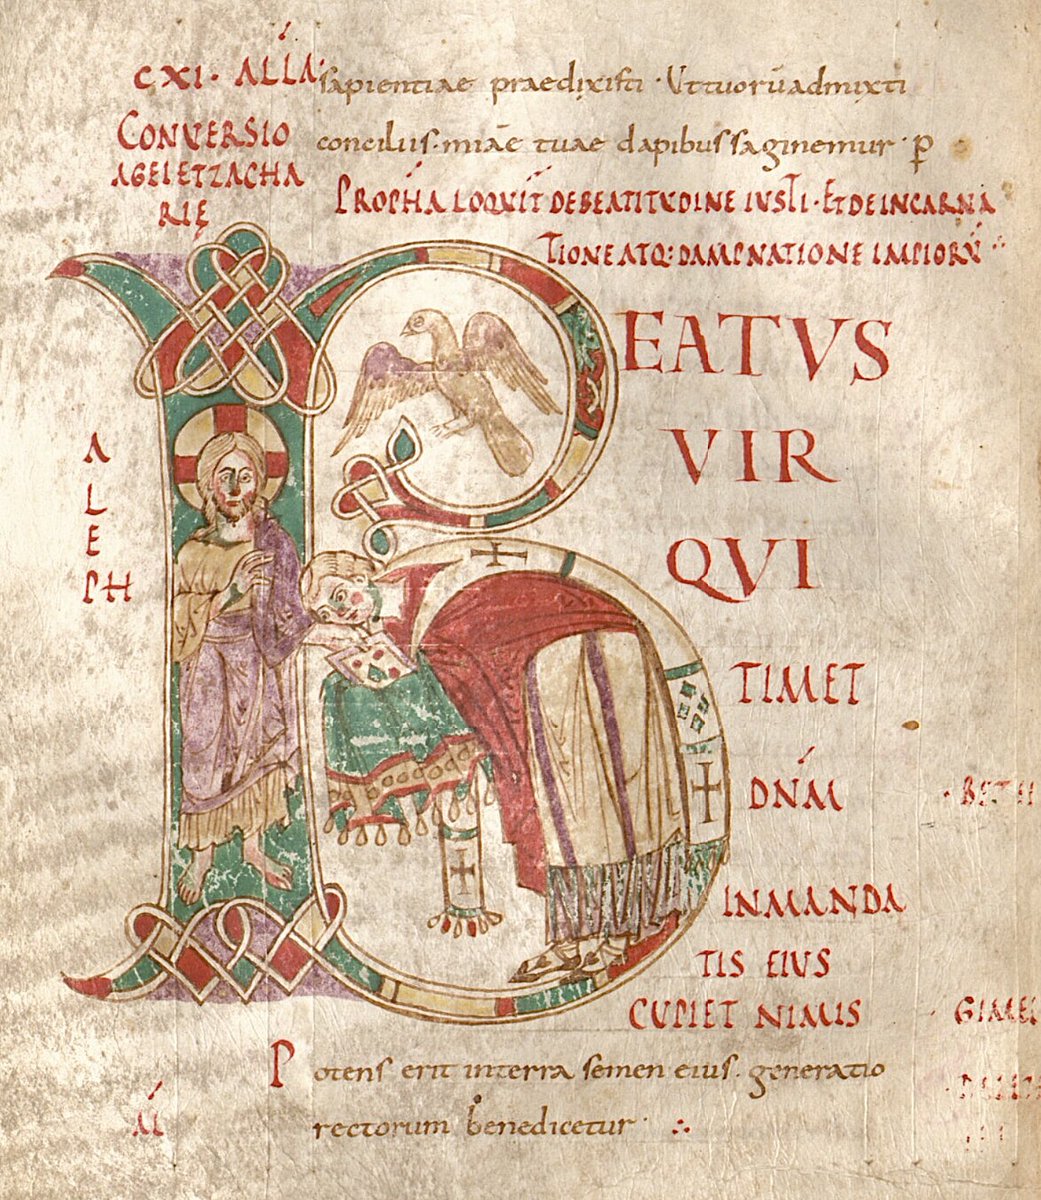 CXI · ALLA·
sapientiae praedixisti · Ut tuorū admixti
CONVERSIO
conciliis · miāe tuae dapibus saginemur · p̲
AGEI ET ZACHA
RIĘ
PROPHA LOQUIT DE BEATITUDINE IUSTI · ET DE INCARNA
TIONE ATQ: DAMPNATIONE IMPIORŪ
BEATVS
VIR
ALEPH
QVI
TIMET
DNM
· BETH
IN MANDA
TIS EIUS
CUPIET NIMIS
GIMEL
Potens erit in terra semen eius · generatio
rectorum benedicetur ·